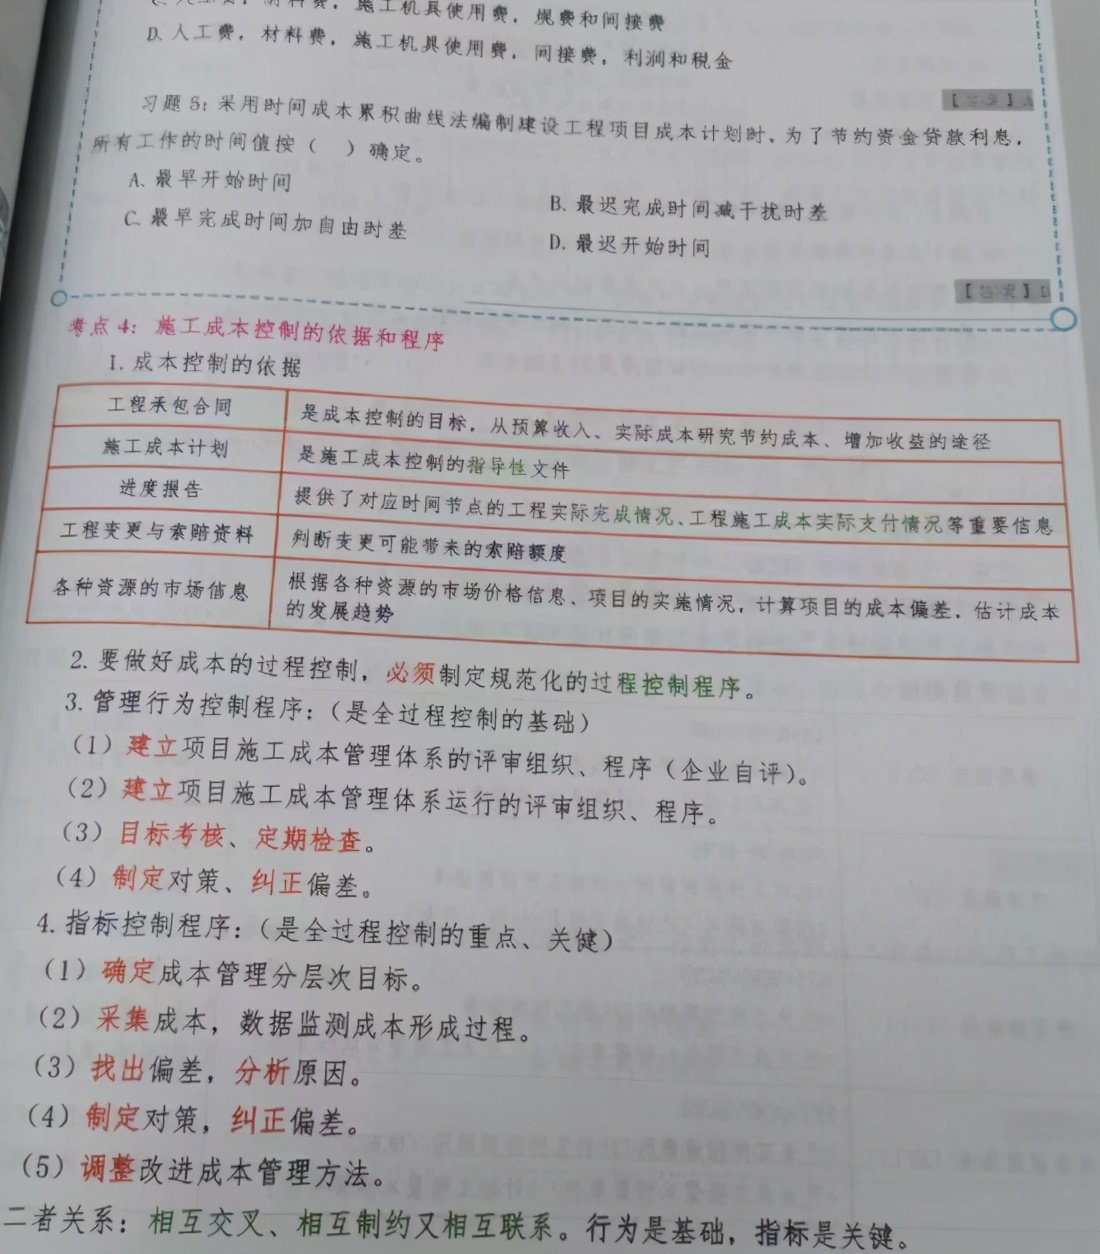 C. 人工费，材料费，施工机具使用费，规费和间接费
D. 人工费，材料费，施工机具使用费，间接费，利润和税金
【答案】A
习题 5：采用时间成本累积曲线法编制建设工程项目成本计划时，为了节约资金贷款利息，
所有工作的时间值按（　）确定。
A、最早开始时间
B. 最迟完成时间减干扰时差
C. 最早完成时间加自由时差
D. 最迟开始时间
【答案】D
考点 4：施工成本控制的依据和程序
1. 成本控制的依据
工程承包合同 是成本控制的目标，从预算收入、实际成本研究节约成本、增加收益的途径
施工成本计划 是施工成本控制的指导性文件
进度报告 提供了对应时间节点的工程实际完成情况、工程施工成本实际支付情况等重要信息
工程变更与索赔资料 判断变更可能带来的索赔额度
各种资源的市场信息 根据各种资源的市场价格信息、项目的实施情况，计算项目的成本偏差，估计成本
的发展趋势
2. 要做好成本的过程控制，必须制定规范化的过程控制程序。
3. 管理行为控制程序：（是全过程控制的基础）
（1）建立项目施工成本管理体系的评审组织、程序（企业自评）。
（2）建立项目施工成本管理体系运行的评审组织、程序。
（3）目标考核、定期检查。
（4）制定对策、纠正偏差。
4. 指标控制程序：（是全过程控制的重点、关健）
（1）确定成本管理分层次目标。
（2）采集成本，数据监测成本形成过程。
（3）找出偏差，分析原因。
（4）制定对策，纠正偏差。
（5）调整改进成本管理方法。
二者关系：相互交叉、相互制约又相互联系。行为是基础，指标是关键。